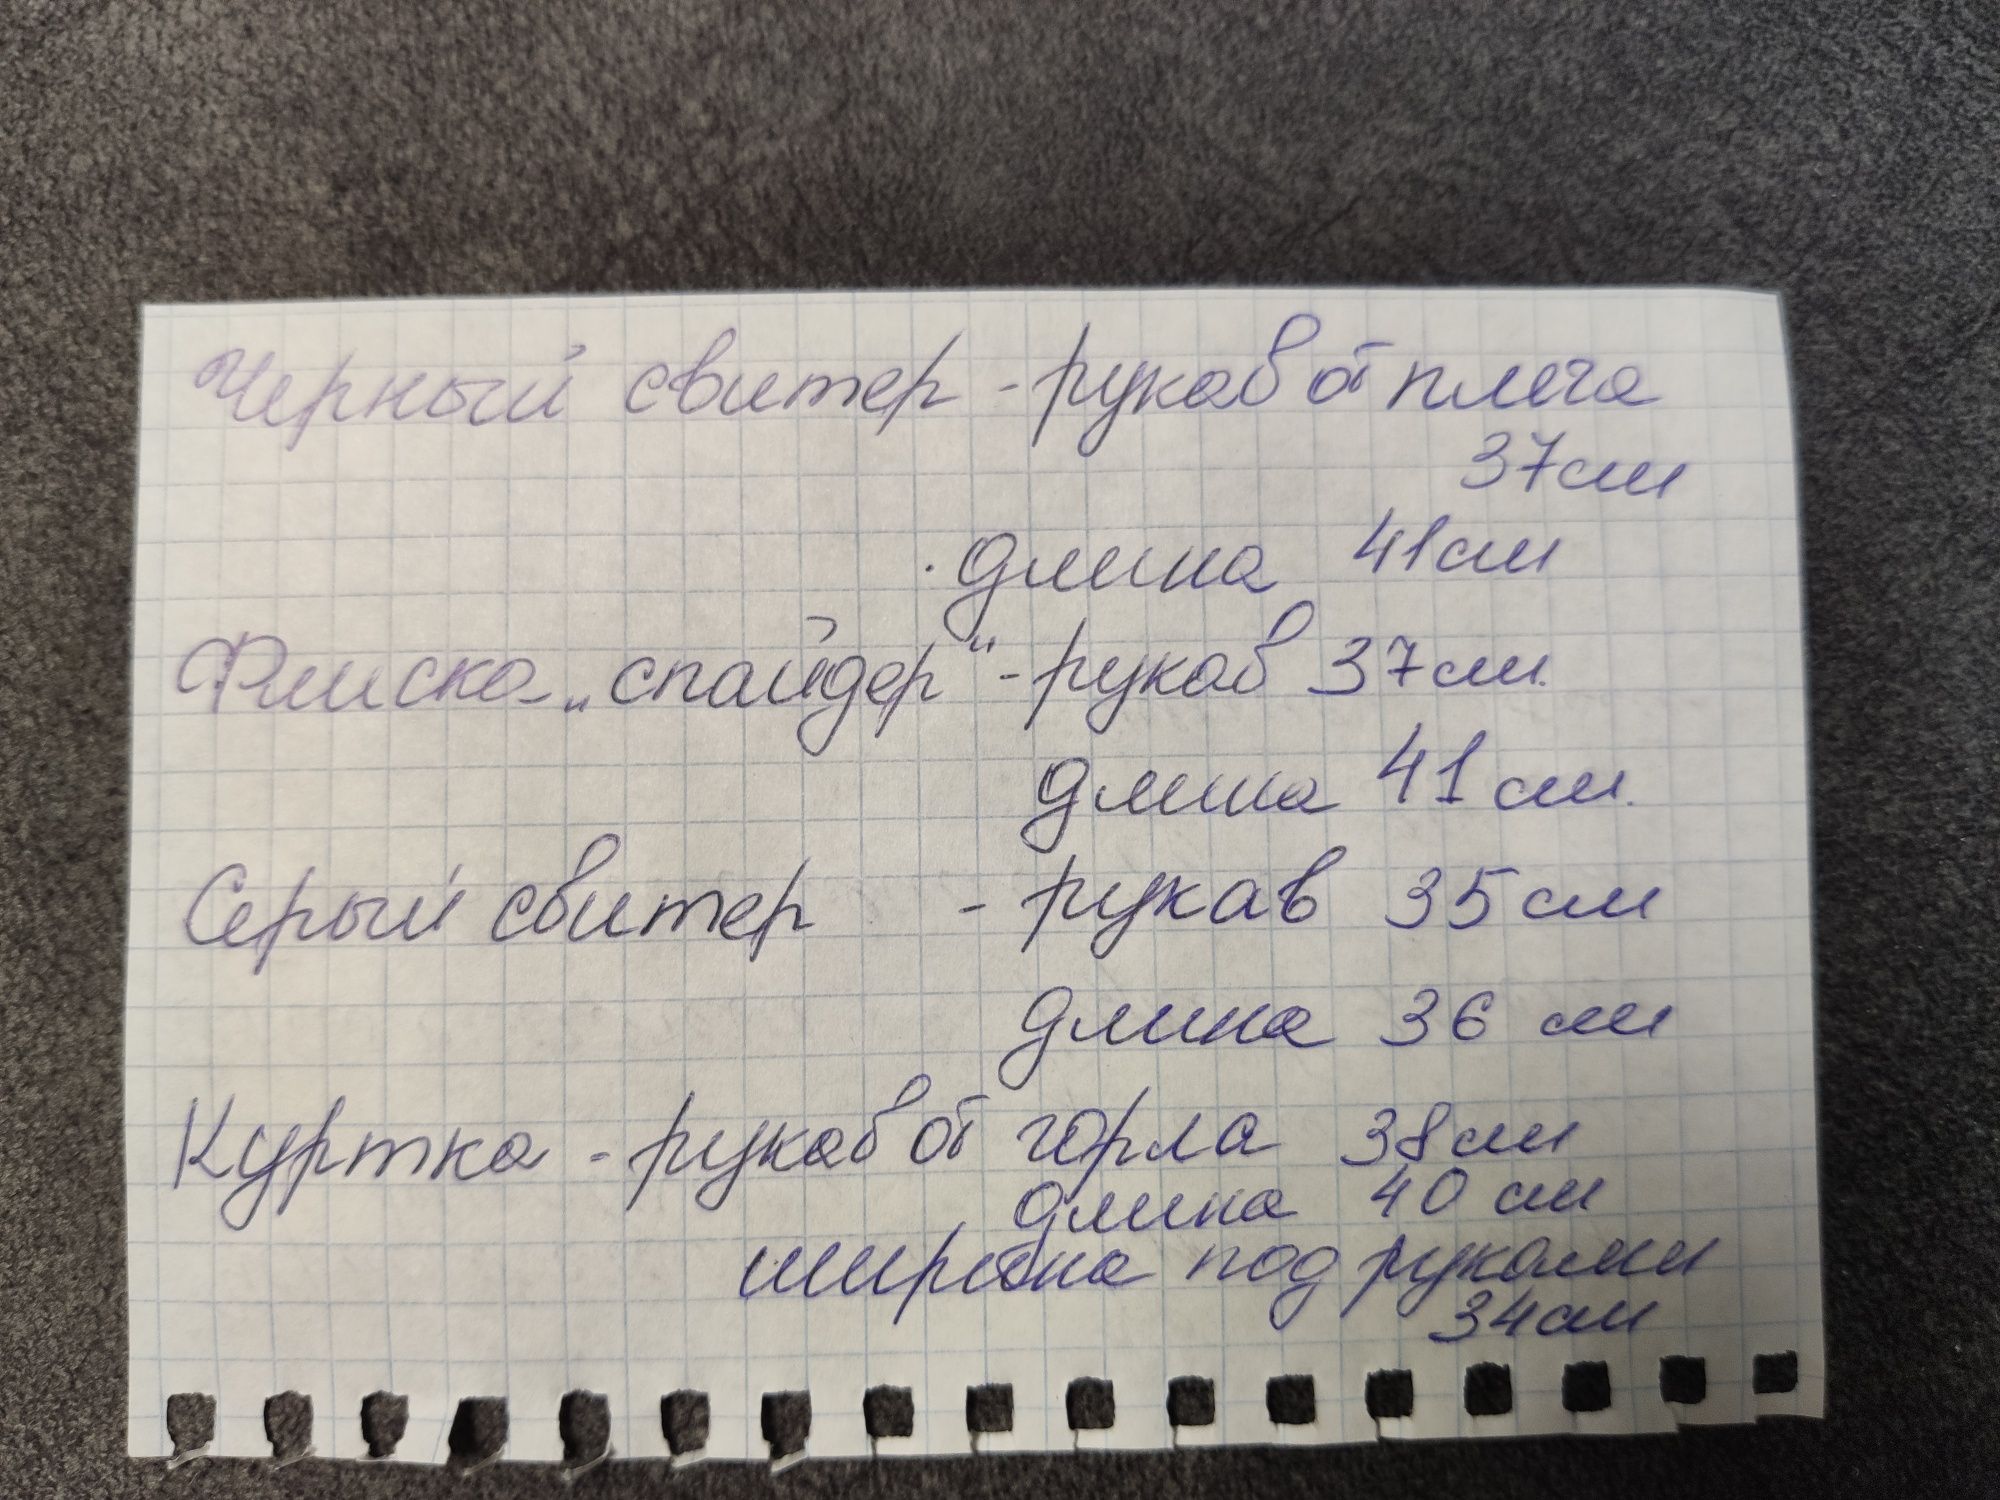 Черный свитер - рукав от плеча
37см
. длина 41см
Флиска „спайдер“ - рукав 37см.
длина 41см.
Серый свитер - рукав 35см
длина 36 см
Куртка - рукав от горла 38см
длина 40 см
ширина под руками
34см